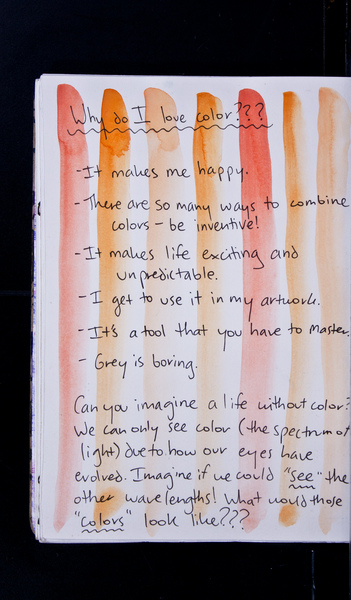 Why do I love color???
- It makes me happy.
- There are so many ways to combine
colors - be inventive!
- It makes life exciting and
unpredictable.
- I get to use it in my artwork.
- It's a tool that you have to master.
- Grey is boring.
Can you imagine a life without color?
We can only see color (the spectrum of
light) due to how our eyes have
evolved. Imagine if we could "see" the
other wavelengths! What would those
"colors" look like???